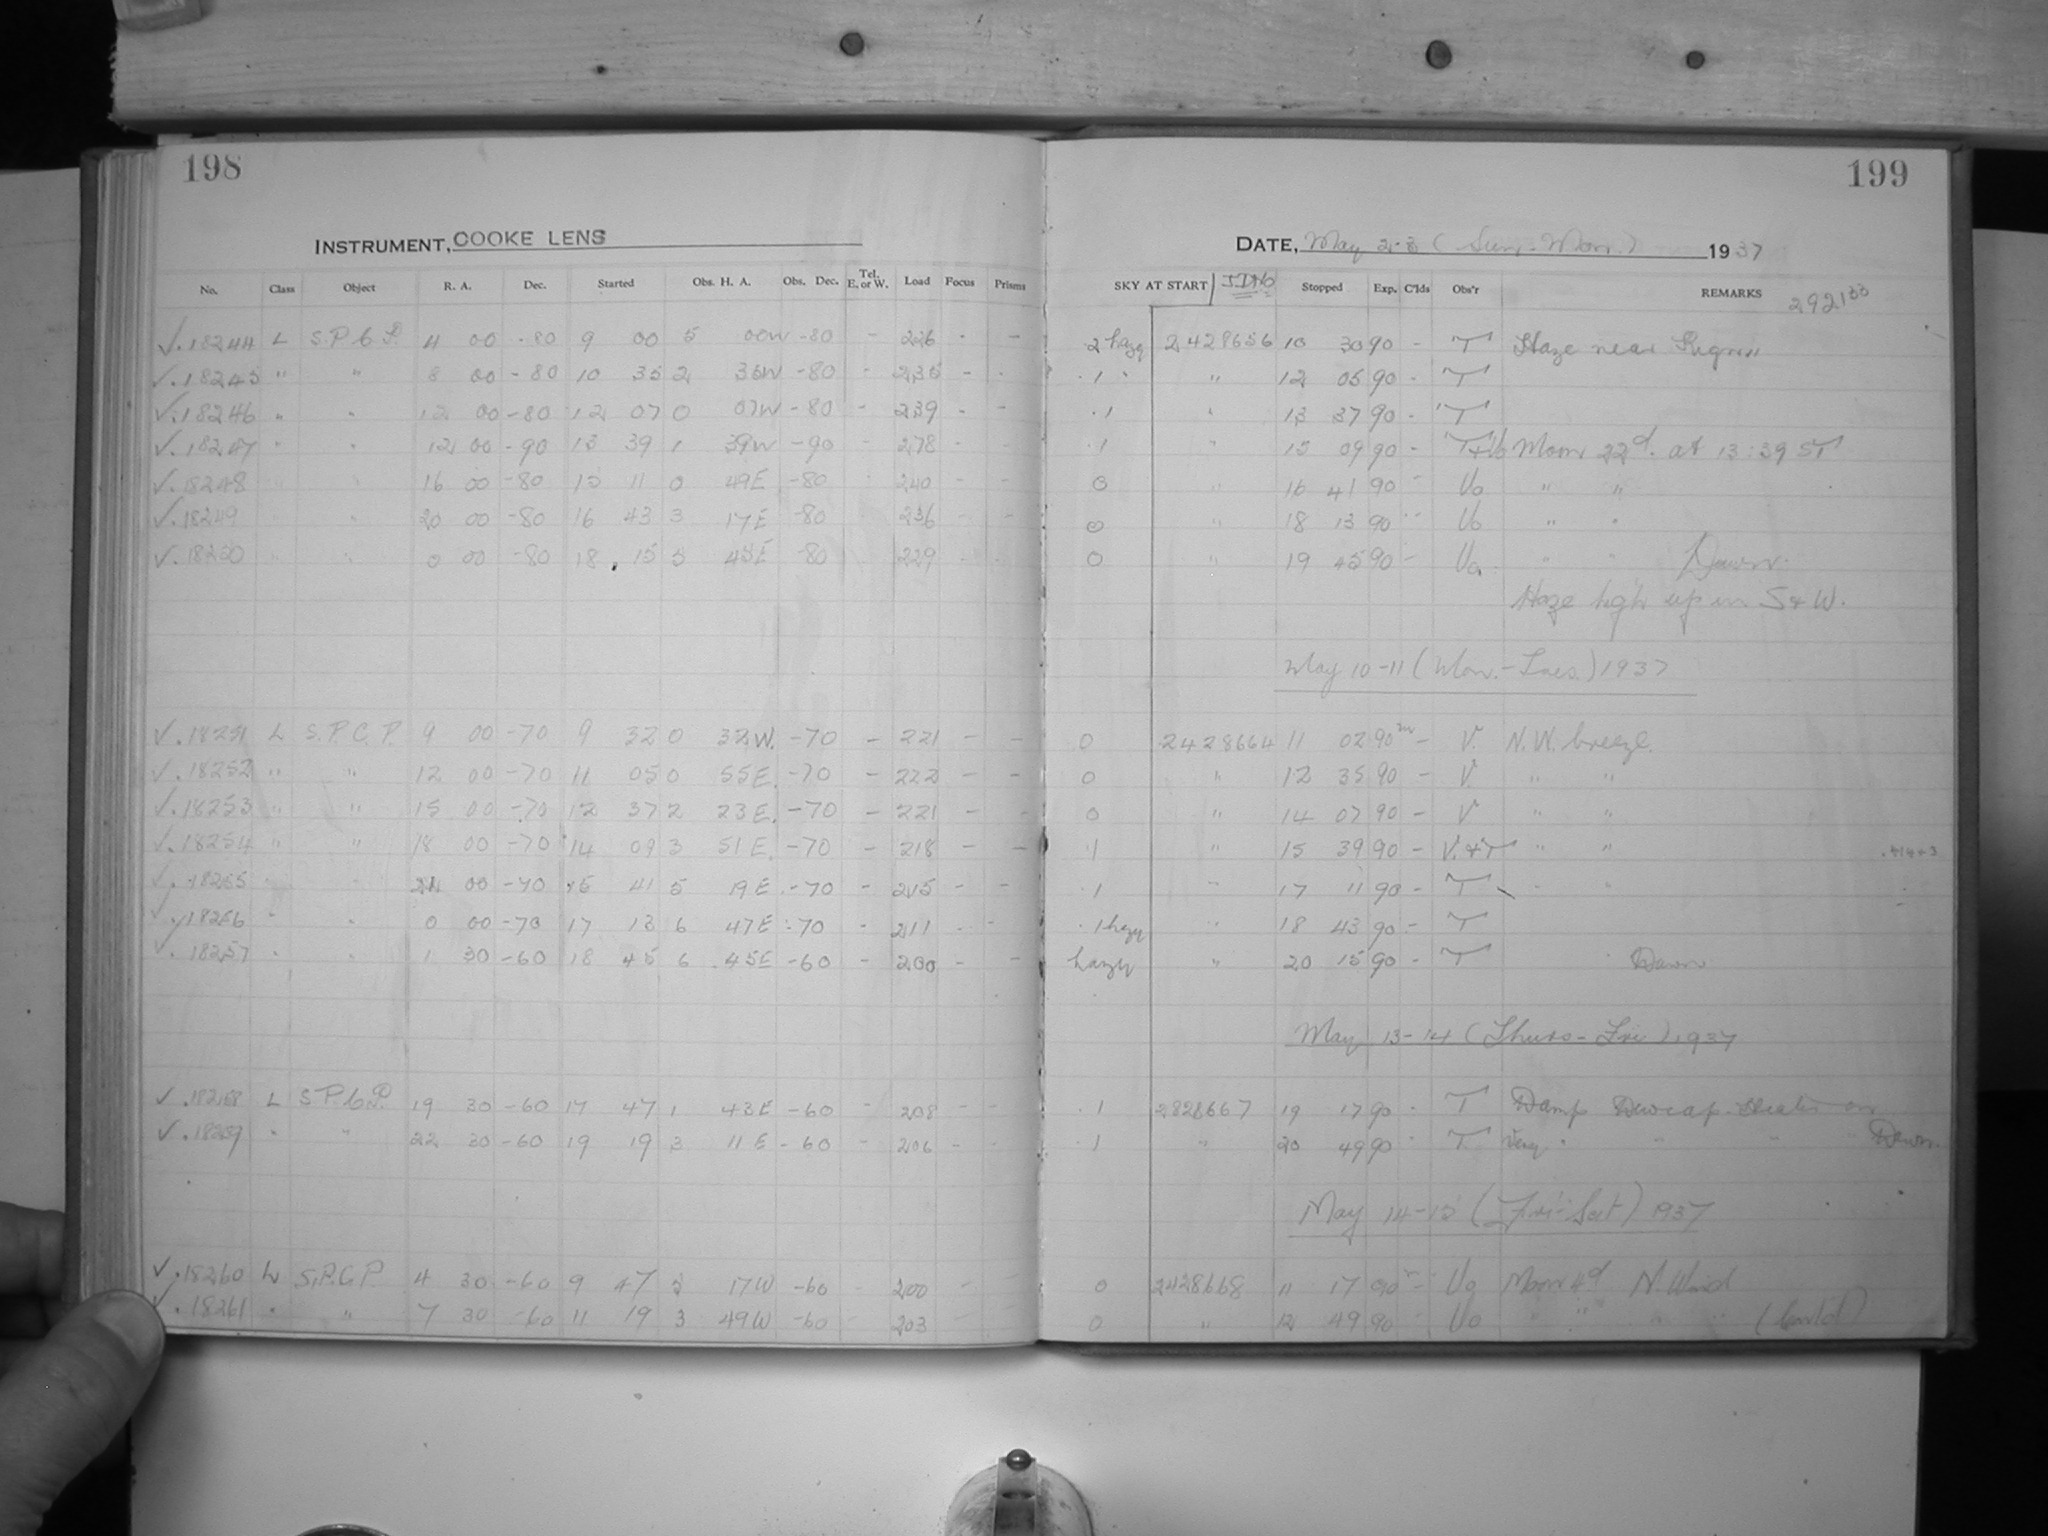 198
INSTRUMENT, COOKE LENS
No. Class Object R. A. Dec. Started Obs. H. A. Obs. Dec. Tel. E. or W. Load Focus Prisms
✓. 18244 L S.P.C.P. 4 00 -80 9 00 5 00W -80 - 226 - -
✓. 18245 " " 8 00 -80 10 35 2 35W -80 - 235 - -
✓. 18246 " " 12 00 -80 12 07 0 07W -80 - 239 - -
✓. 18247 " " 12 00 -90 13 39 1 39W -90 - 278 - -
✓. 18248 " " 16 00 -80 15 11 0 49E -80 - 240 - -
✓. 18249 " " 20 00 -80 16 43 3 17E -80 - 236 - -
✓. 18250 " " 0 00 -80 18 15 5 45E -80 229 - -
✓. 18251 L S.P.C.P. 9 00 -70 9 32 0 32W. -70 - 221 - -
✓. 18252 " " 12 00 -70 11 05 0 55E. -70 - 222 - -
✓. 18253 " " 15 00 -70 12 37 2 23E. -70 - 221 - -
✓. 18254 " " 18 00 -70 14 09 3 51E. -70 - 218 - -
✓. 18255 " " 21 00 -70 15 41 5 19E. -70 - 215 - -
✓. 18256 " " 0 00 -70 17 13 6 47E -70 - 211 - -
✓. 18257 " " 1 30 -60 18 45 6 45E -60 - 200 - -
✓. 18258 L S.P.C.P. 19 30 -60 17 47 1 43E -60 - 208 - -
✓. 18259 " " 22 30 -60 19 19 3 11E -60 - 206 - -
✓. 18260 L S.P.C.P. 4 30 -60 9 47 5 17W -60 200 -
✓. 18261 " " 7 30 -60 11 19 3 49W -60 - 203 -
199
DATE, May 2-3 (Sun.-Mon.) 1937
SKY AT START J.D.No Stopped Exp. C'lds Obs'r REMARKS 292133
.2 hazy 2428656 10 30 90 - T Haze near
.1 " 12 05 90 - T
.1 " 13 37 90 - T
.1 " 15 09 90 - Moon 22d. at 13:39 ST
0 " 16 41 90 - " "
0 " 18 13 90 - " "
0 " 19 45 90 - " " Dawn.
Haze high up in S & W.
May 10-11 (Mon.-Tues.) 1937
0 2428664 11 02 90m - V. N.W. breeze.
0 " 12 35 90 - V. " "
0 " 14 07 90 - V. " "
.1 " 15 39 90 - V. & T " "
.1 " 17 11 90 - T " "
.1 hazy " 18 43 90 - T
hazy " 20 15 90 - T Dawn
May 13-14 (Thurs-Fri) 1937
.1 2828667 19 17 90 - T Damp Dewcap-Heater on
.1 " 20 49 90 - T Very " " " " Dawn.
May 14-15 (Fri-Sat) 1937
0 2428668 11 17 90m - Moon 4d N. Wind
0 " 12 49 90 - " " " " (Contd)